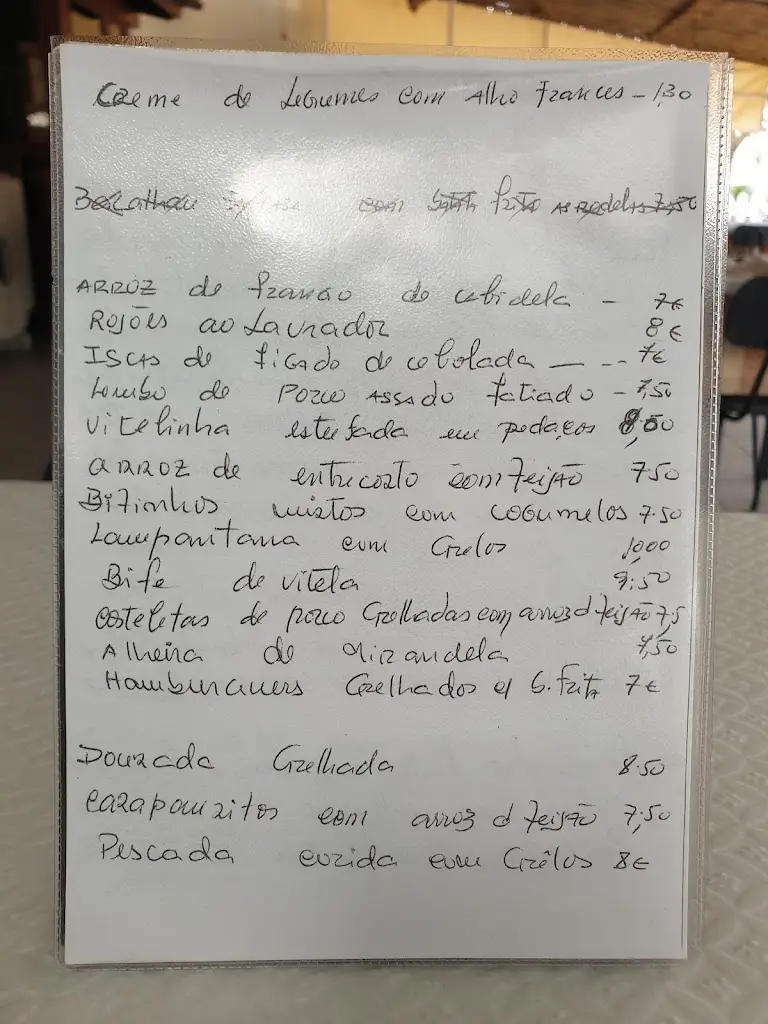 Creme de Legumes com Alho Frances - 1,30
Bacalhau com frito às rodelas 7,50
ARROZ de frango de cabidela - 7€
ROJÕES ao Lavrador 8€
ISCAS de figado de cebolada - -- 7€
Lombo de Porco ASSAdo fatiado - 7,50
Vitelinha estufada em pedaços 8,50
ARROZ de entrecosto com feijão 7.50
Bifinhos mistos com cogumelos 7.50
Lampantana com Grelos 10,00
Bife de vitela 9:50
costeletas de porco Grelhadas com arroz d feijão 7,5
Alheira de Mirandela 7,50
Hamburguers Grelhados c/ b. frita 7€
Dourada Grelhada 8.50
carapauzitos com arroz d feijão 7,50
Pescada cozida com Grêlos 8€